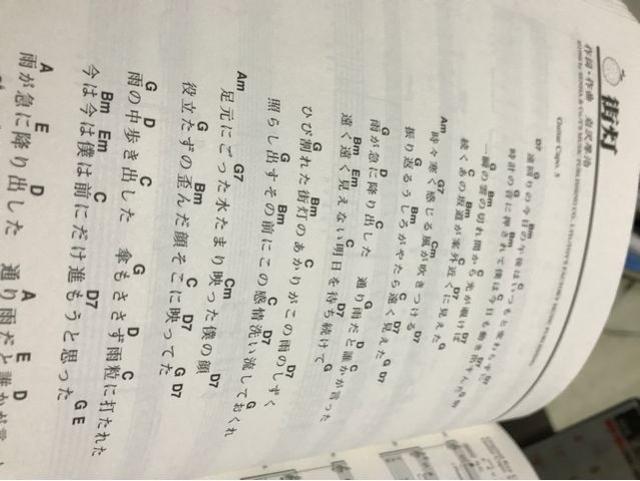 街灯
作詞・作曲 岩沢厚治
Guitar Capo. 3
D7 G Bm C D7
遠回りの今日の午後はいつもと変わらず
G Bm C D7
時計の音に押されて僕は今日も動き出す
G Bm C D7
一瞬の雲の切れ間から光が覗けば
G Bm C D7 G
続くあの坂道が案外近くに見えた
Am G7 Cm D7
時々寒く感じる風が吹きつける
G Bm C D7 G D7
振り返るうしろがやたら遠く見えた
G D C G D C
雨が急に降り出した 通り雨だと誰かが言った
Bm Em C D7 G
遠く遠く見えない明日を待ち続けて
Bm C D7
ひび割れた街灯のあかりがこの雨のしずく
G Bm C D7
照らし出すその前にこの感情洗い流しておくれ
Am G7 Cm D7
足元にごった水たまり映った僕の顔
G Bm C D7 G D7
役立たずの歪んだ顔そこに映ってた
G D C G D C
雨の中歩き出した 傘もささず雨粒に打たれた
Bm Em C D7 G E
今は今は僕は前にだけ進もうと思った
A E D A E D
雨が急に降り出した 通り雨だと誰かが言